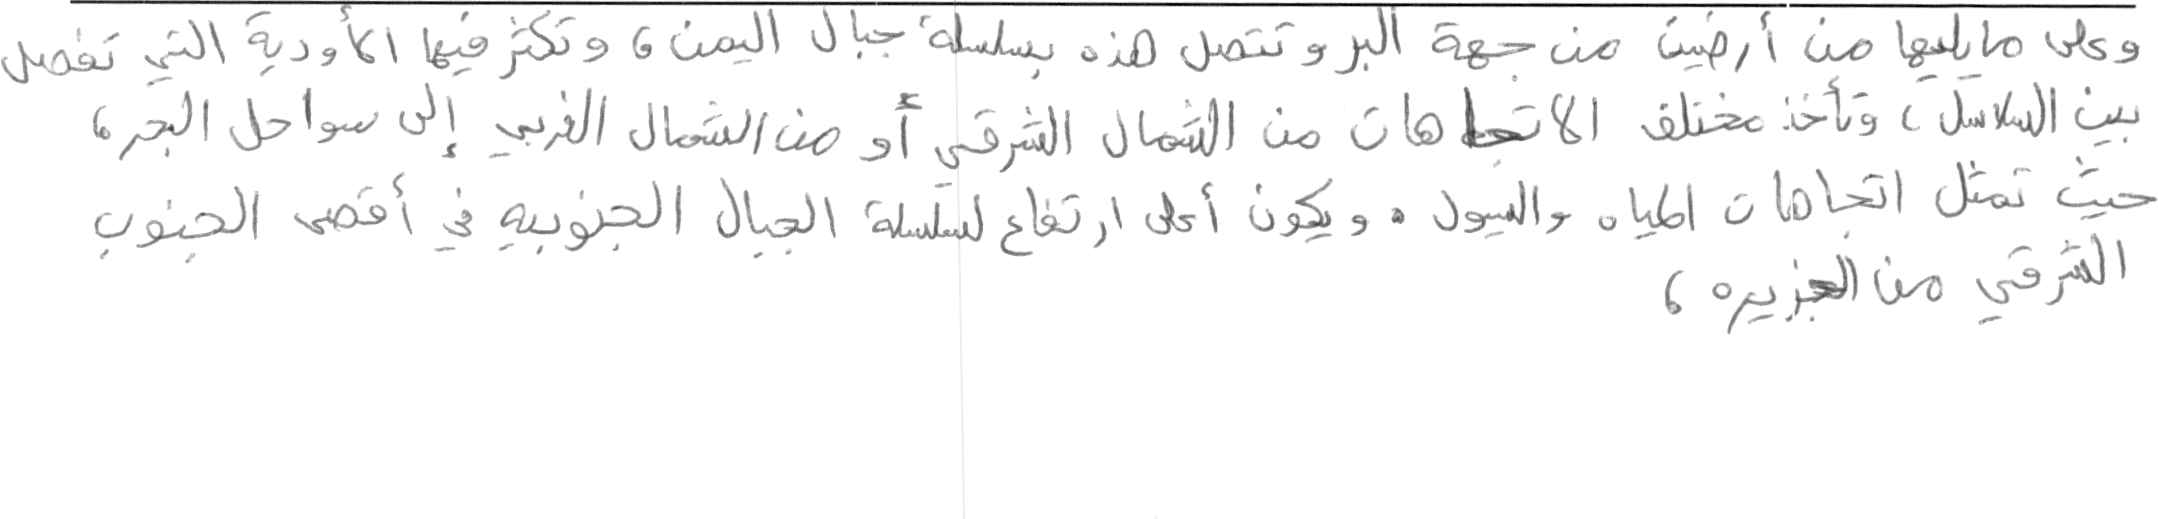 وعلى ما يليها من أرضين من جهة البر وتتصل هذه بسلسلة جبال اليمن، وتكثر فيها الأودية التي تفصل
بين السلاسل، وتأخذ مختلف الاتجاهات من الشمال الشرقي أو من الشمال الغربي إلى سواحل البحر،
حيث تمثل اتجاهات المياه والسيول. ويكون أعلى ارتفاع لسلسلة الجبال الجنوبيه في أقصى الجنوب
الشرقي من الجزيره،